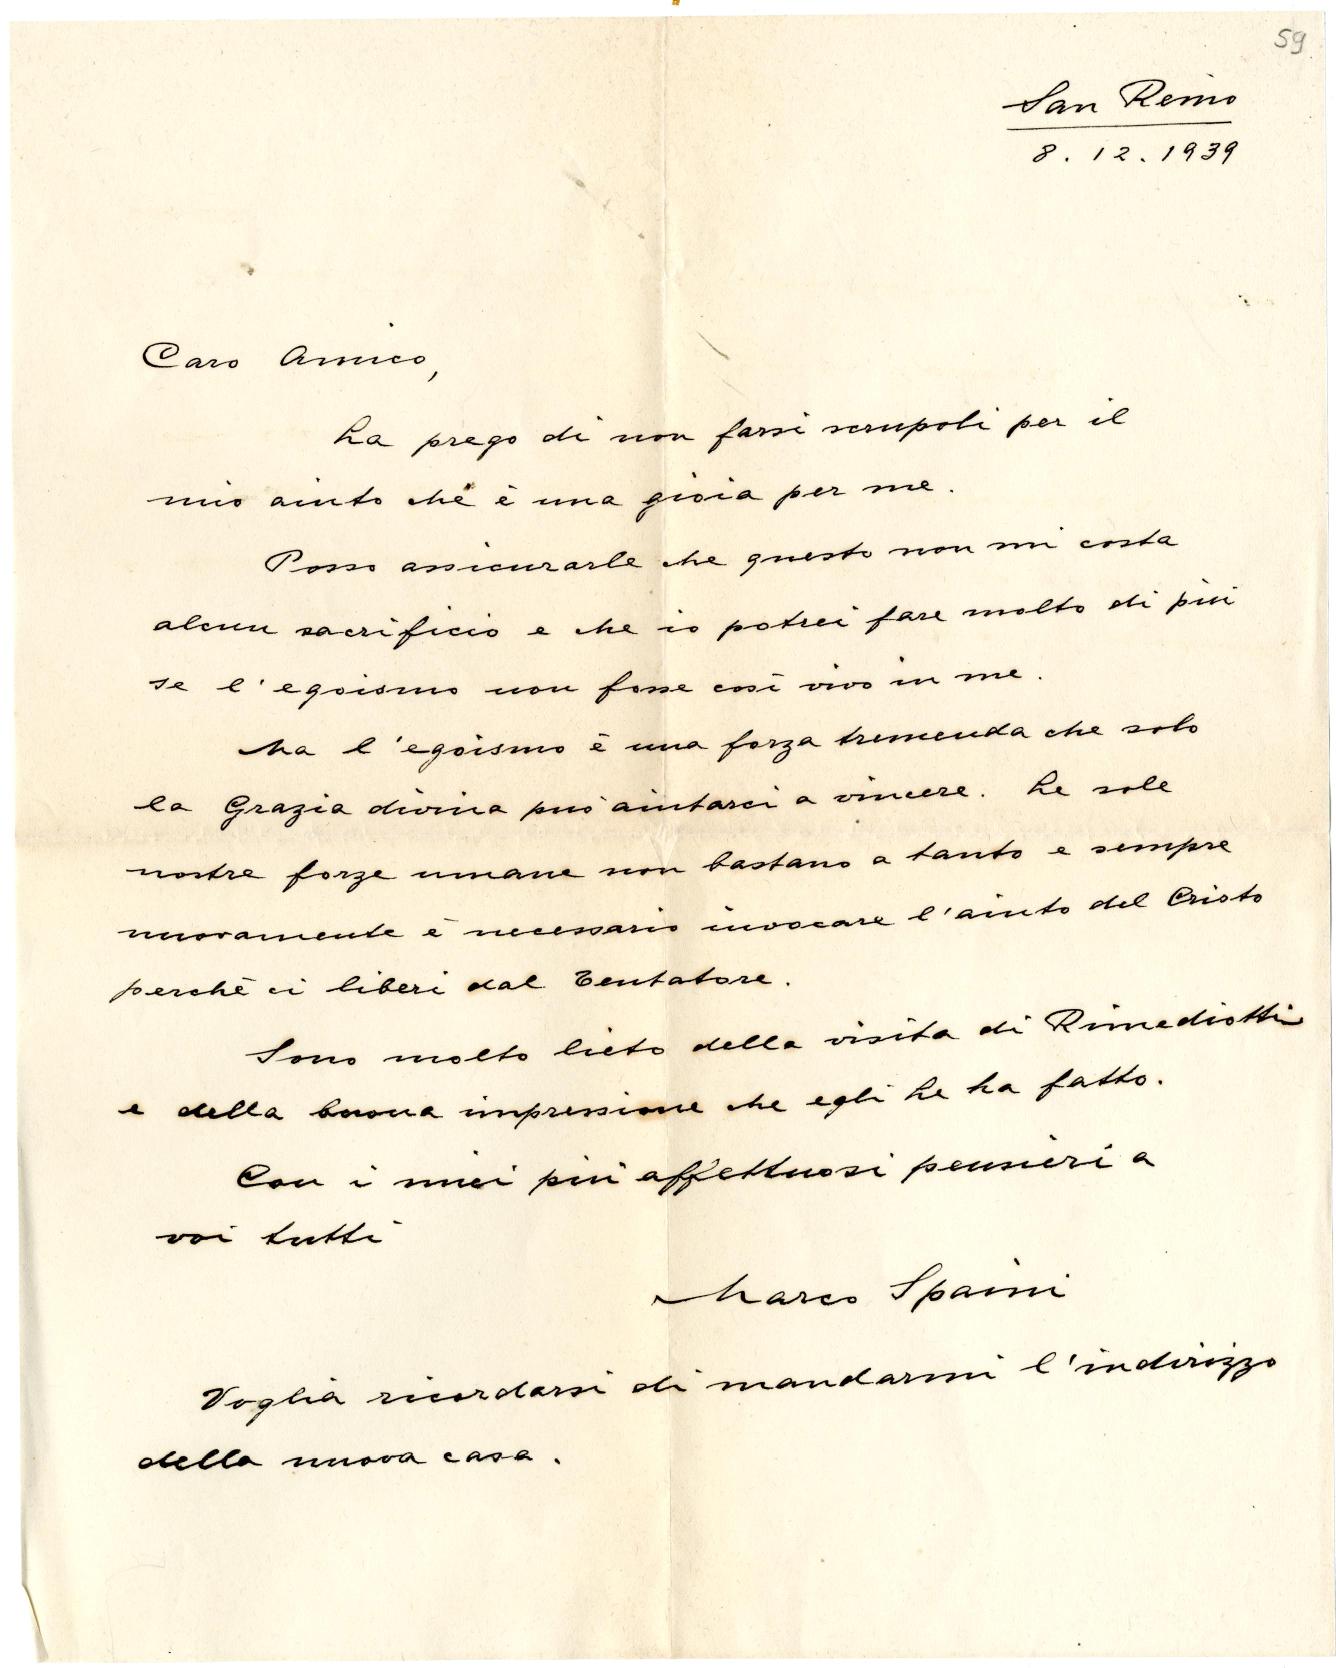 59
San Remo
8.12.1939
Caro Amico,
La prego di non farsi scrupoli per il
mio aiuto che è una gioia per me.
Posso assicurarle che questo non mi costa
alcun sacrificio e che io potrei fare molto di più
se l'egoismo non fosse così vivo in me.
Ma l'egoismo è una forza tremenda che solo
la Grazia divina può aiutarci a vincere. Le sole
nostre forze umane non bastano a tanto e sempre
nuovamente è necessario invocare l'aiuto del Cristo
perchè ci liberi dal Tentatore.
Sono molto lieto della visita di Rimediotti
e della buona impressione che egli Le ha fatto.
Con i miei più affettuosi pensieri a
voi tutti
Marco Spaini
Voglia ricordarsi di mandarmi l'indirizzo
della nuova casa.